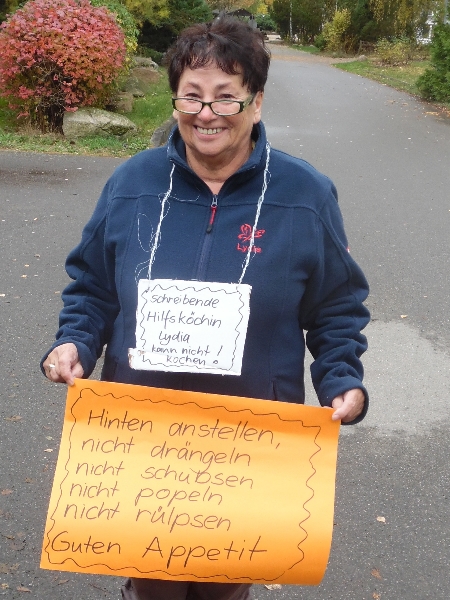 Lydia
schreibende
Hilfsköchin
Lydia
kann nicht!
kochen.
Hinten anstellen,
nicht drängeln
nicht schubsen
nicht popeln
nicht rülpsen
Guten Appetit